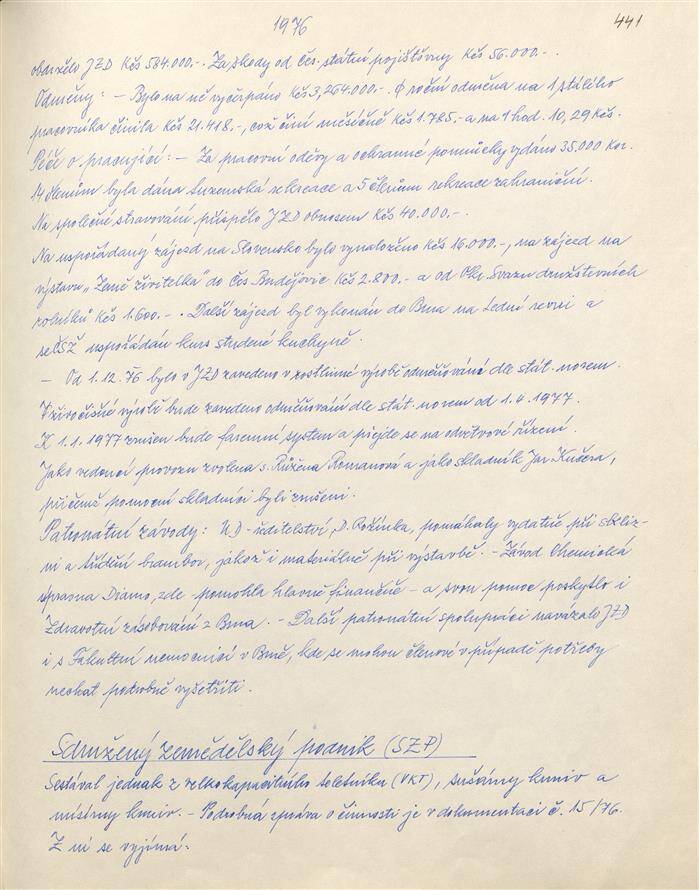 1976
441
obdrželo JZD Kčs 584.000.-. Za škody od čes. státní pojišťovny Kčs 56.000.-.
Odměny: - Bylo na ně vyčerpáno Kčs 3,264.000.-. ϕ roční odměna na 1 stálého
pracovníka činila Kčs 21.418.-, což činí měsíčně Kčs 1.785,- a na 1 hod. 10,29 Kčs.
Péče o pracující: - Za pracovní oděvy a ochranné pomůcky vydáno 35.000 Kčs.
14 členům byla dána tuzemská rekreace a 5 členům rekreace zahraniční.
Na společné stravování přispělo JZD obnosem Kčs 40.000.-.
Na uspořádaný zájezd na Slovensko bylo vynaloženo Kčs 16.000.-, na zájezd na
výstavu „Země živitelka" do Čes. Budějovic Kčs 2.800.- a od Okr. Svazu družstevních
rolníků Kčs 1.600.-. Další zájezd byl vykonán do Brna na Lední revui a
se ČSŽ uspořádán kurs studené kuchyně.
- Od 1.12.76 bylo v JZD zavedeno v rostlinné výrobě odměňování dle stát. norem.
V živočišné výrobě bude zavedeno odměňování dle stát. norem od 1.4.1977.
K 1.1.1977 zrušen bude faremní systém a přejde se na odvětvové řízení.
Jako vedoucí provozu zvolena s. Růžena Romanová a jako skladník Jar. Kučera,
přičemž pomocní skladníci byli zrušeni.
Patronátní závody: UD-ředitelství, D. Rožínka, pomáhaly vydatně při skliz-
ni a třídění brambor, jakož i materiálně při výstavbě. - Závod Chemická
úpravna Diamo, zde pomohla hlavně finančně - a svou pomoc poskytlo i
Zdravotní zásobování z Brna. - Další patronátní spolupráci navázalo JZD
i s Fakultní nemocnicí v Brně, kde se mohou členové v případě potřeby
nechat podrobně vyšetřiti.
Sdružený zemědělský podnik (SZP)
Sestával jednak z velkokapacitního teletníku (VKT), sušárny krmiv a
mísírny krmiv. - Podrobná zpráva o činnosti je v dokumentaci č. 15/76.
Z ní se vyjímá: